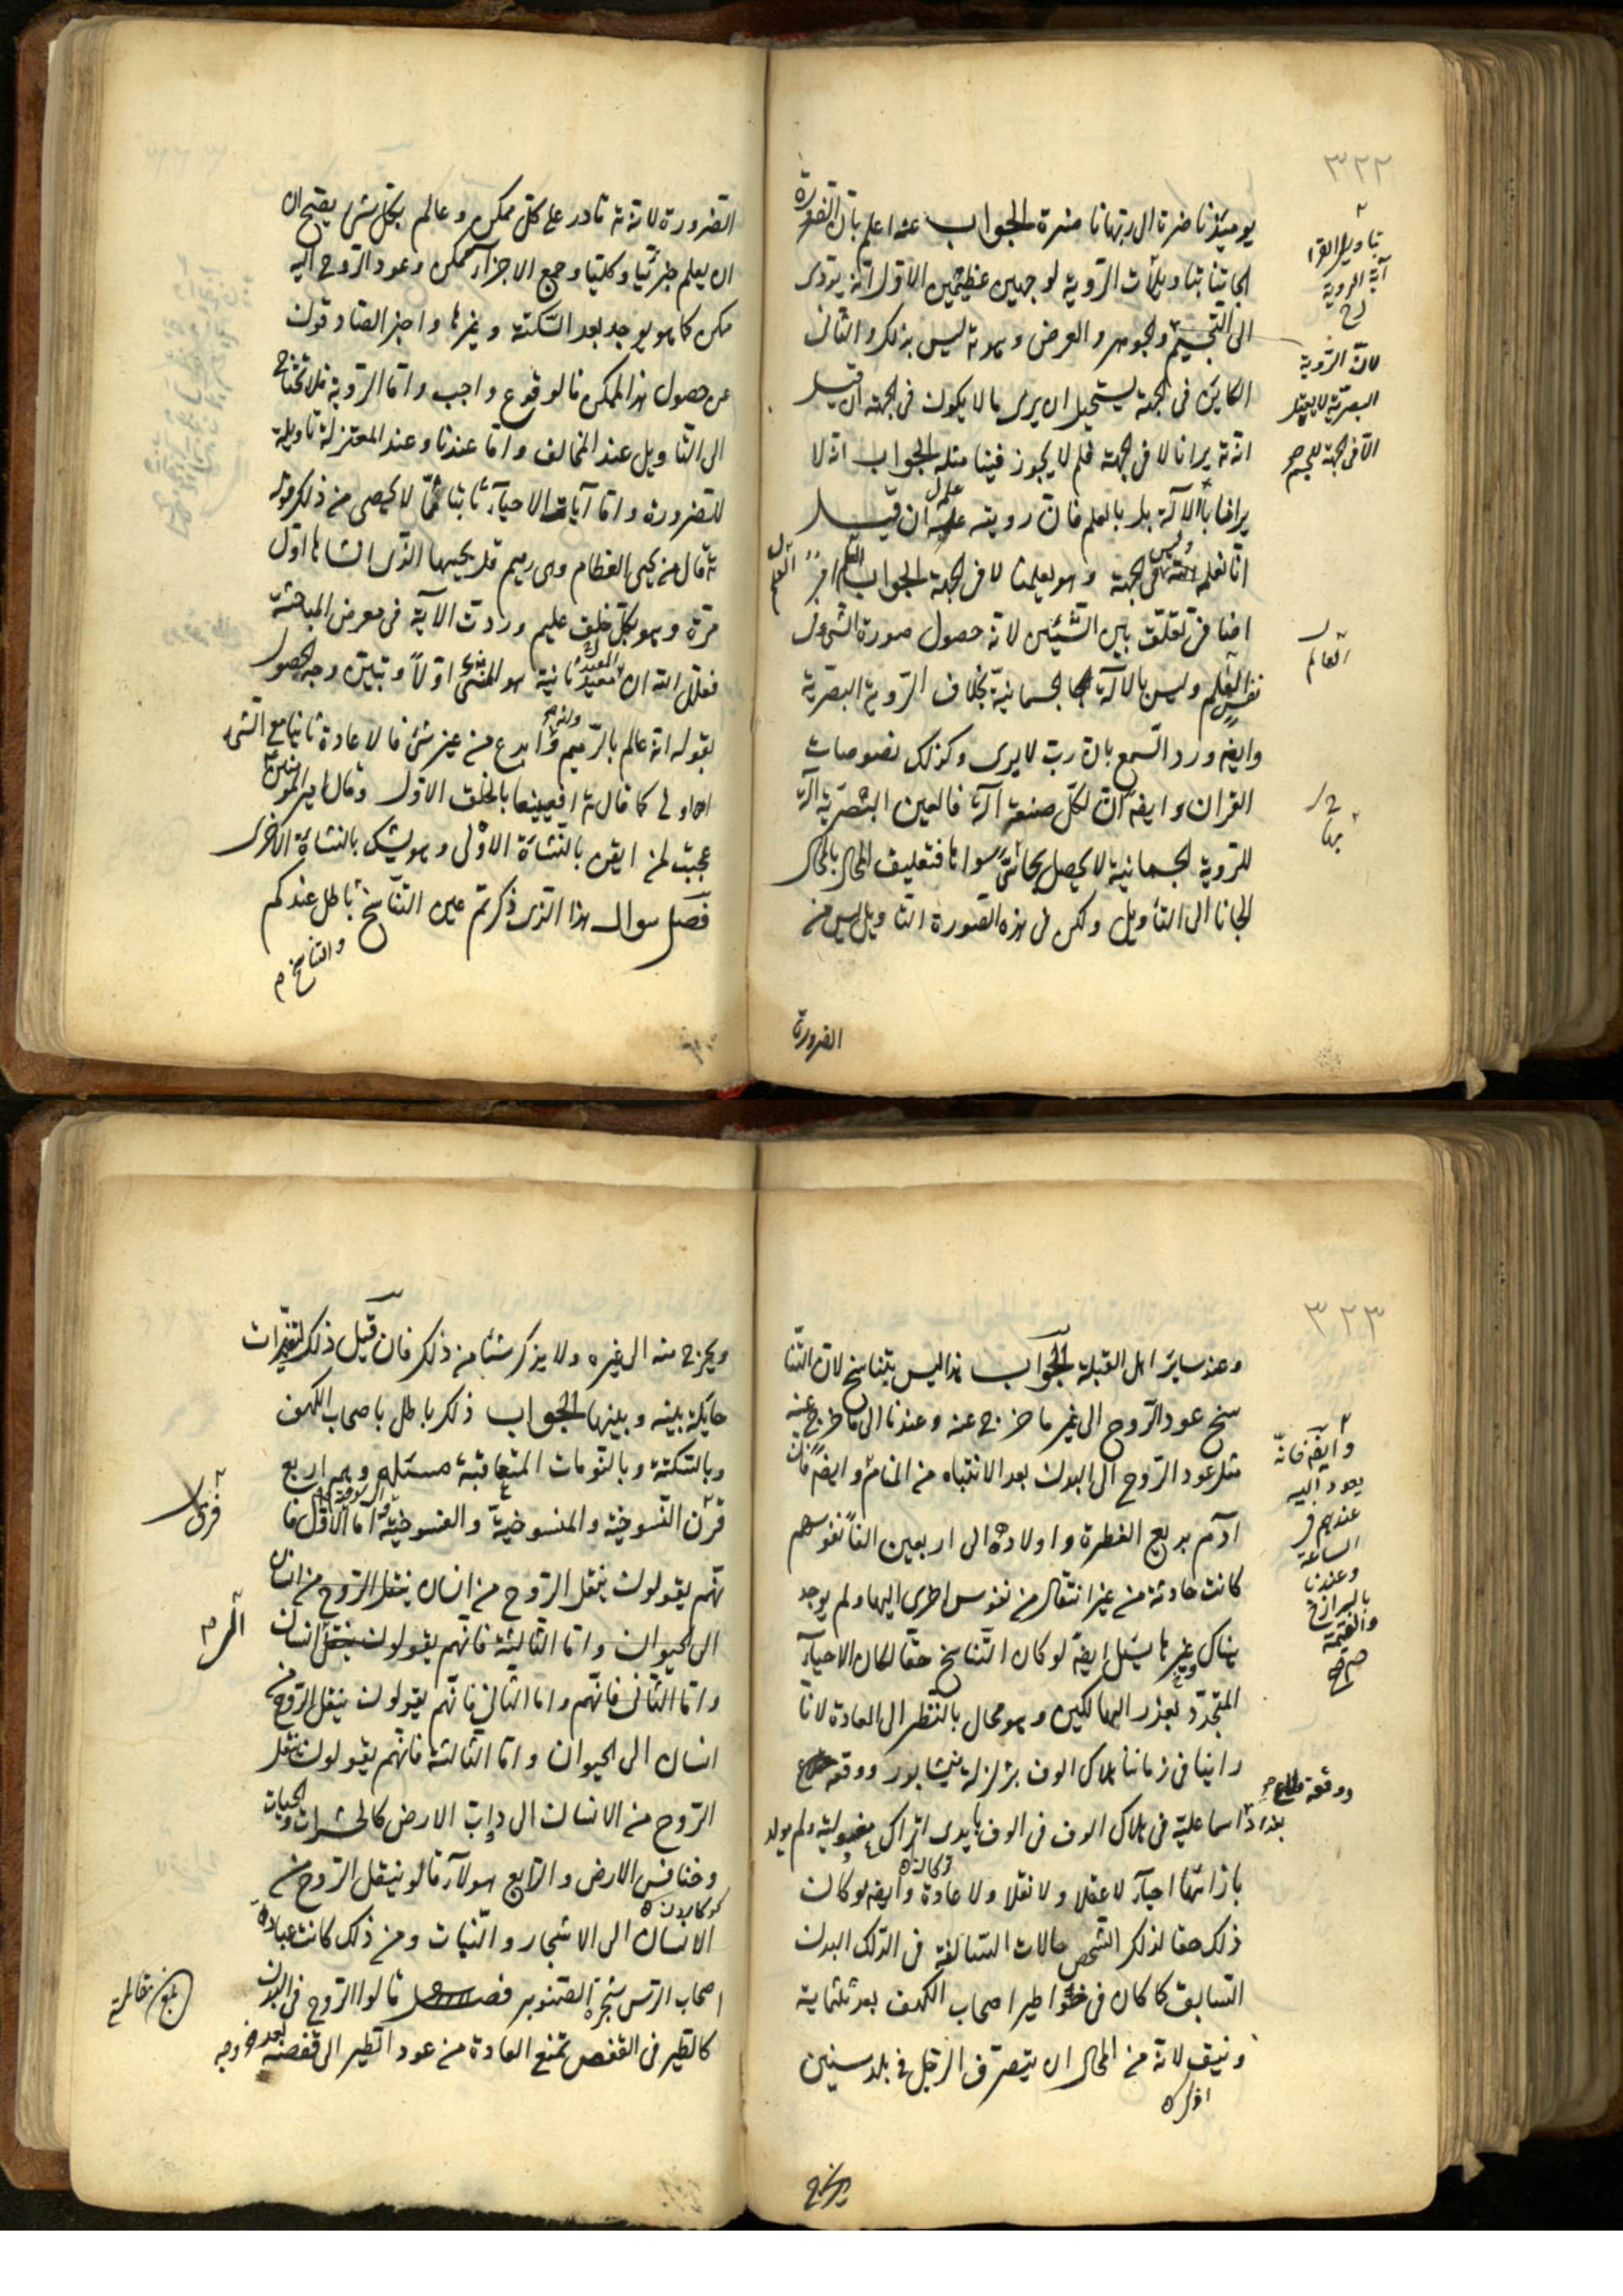 ٣٢٢
يومئذ ناضرة الى ربها ناظرة الجواب عنه اعلم بان الضرورة
الجاتنا بتاويل آيات الروية لوجهين عظيمين الاول انه يؤدى
الى التجسيم والجوهر والعرض وهو تة ليس بذلك والثانى
الكاين فى الجهة يستحيل ان يرى ما لا يكون فى الجهة ان قيل
انه تة يرانا لا فى الجهة فلم لا يجوز فينا مثله الجواب انه لا
يرانا بالآلة بل بالعلم فان رويته علمه ان قيل
انا نعلمه وليس فى الجهة وهو يعلمنا لا فى الجهة الجواب العلم
اضافى تعلق بين الشيئين لانه حصول صورة الشى فى
نفس العالم وليس بالآلة الجسمانية بخلاف الروية البصرية
وايضه ورد السمع بان رب لا يرى وكذلك نصوصات
القران وايضه ان لكل صنعة آلة فالعين البصرية آلة
للروية الجسمانية لا يحصل بحاسة سواها فتعليق المحال بالمحال
الجانا الى التاويل ولكن فى هذه الصورة التاويل ليس من
الضرورة
بتاويل القرا
آية الروية
لان الروية
البصرية لا يعقل
الا فى الجهة للجسم
العالم
الضرورة لانه تة قادر على كل ممكن وعالم بكل شى يصح ان
ان يعلم جزئيا وكليا وجمع الاجزآء ممكن وعود الروح اليه
ممكن كما هو يوجد بعد السكتة وغيرها واخبر الصادقون
عن حصول هذا الممكن فالوقوع واجب واما الروية فلا تحتاج
الى التاويل عند المخالف واما عندنا وعند المعتزلة تاويله
للضرورة واما آيات الاحيآء ثابتا مما لا يحصى من ذلك قوله
تة قال من يحيى العظام وهى رميم قل يحييها الذى انشاها اول
مرة وهو بكل خلق عليم وردت الآية فى معرض المباحثة
فعلل الله ان المعيد ثانية هو المنشى اولا وتبين وجه الحصول
بقوله انه عالم بالرميم وابدع من غير شى فالاعادة ثانيا مع الشى
اولى كما قال تة افعيينا بالخلق الاول وقال امير المومنين
عجبت لمن ايقن بالنشاة الاولى وهو يشك بالنشاة الاخرى
فصل سوال هذا الذى ذكرتم عين التناسخ باطل عندكم
والتناسخ م
٣٢٣
وعند ساير اهل القبلة الجواب هذا ليس بتناسخ لان التنا
سخ عود الروح الى غير ما خرج عنه وعندنا الى ما خرج عنه
مثل عود الروح الى البدن بعد الانتباه من المنام وايضه فان
آدم بديع الفطرة واولاده الى اربعين الفا نفوسهم
كانت حادثة من غير انتقال من نفوس اخرى اليها ولم يوجد
هناك غيرها ايضه لو كان التناسخ حقا لكان الاحيآء
المتجدد بعدد الهالكين وهو محال بالنظر الى العادة لانا
راينا فى زماننا هلاك الوف بزلزلة نيشابور ووقعة
اسماعلية فى هلاك الوف فى الوف بايدى اتراك ولم يولد
بازائها احيآء لا عقلا ولا نقلا ولا عادة وايضه لو كان
ذلك حقا لذكر الشخص حالات السالفة فى الذلك البدن
السابق كما كان فى خواطير اصحاب الكهف بعد ثلثماية
ونيف لانه من المحال ان يتصرف الرجل فى بلد سنين
ويخرج
وايضه فانه
يعود اليه
عندهم فى
الساعة
وعندنا
بالبرازخ
والقيمة
ووقعة
ويخرج منه الى غيره ولا يذكر شئا من ذلك فان قيل ذلك لتغيرات
حايلة بينه وبينها الجواب ذلك باطل باصحاب الكهف
وبالسكتة وبالنومات المتعاقبة مسئله وهم اربع
فرق النسوخية والمنسوخية والفسوخية اما الاول فا
نهم يقولون ينقل الروح من انسان ينتقل الروح من انسان
الى الحيوان واما الثالثة فانهم يقولون ينتقل انسان
واما الثانى فانهم واما الثانى فانهم يقولون ينتقل الروح من
انسان الى الحيوان واما الثالثة فانهم يقولون ينتقل
الروح من الانسان الى دابة الارض كالحشرات والحيات
وخنافس الارض والرابع هولآء قالو ينتقل الروح من
الانسان الى الاشجار والنبات ومن ذلك كانت عبادة
اصحاب الرس شجرة الصنوبر فصل قالوا الروح فى البدن
كالطير فى القفص تمنع العادة من عود الطير الى قفصه بعد خروجه
فرق